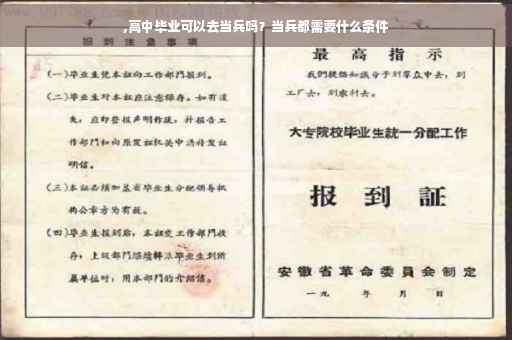 ,高中毕业可以去当兵吗？当兵都需要什么条件
报到注意事项
(一)毕业生凭本证向工作部门报到。
(二)毕业生对本证应注意保存。如有遗
失，应即登报声明作废，并报告工
作部门和向原发证机关申请补发证
明信。
(三)本证必须加盖省毕业生分配领导机
构公章方为有效。
(四)毕业生报到后，本证交工作部门收
存；上级部门
属单位时，用本部门的介绍信。
最高指示
我们提倡知识分子到群众中去，到
工厂去，到农村去。
大专院校毕业生統一分配工作
报到証
安徽省革命委員会制定
一九 年 月 日